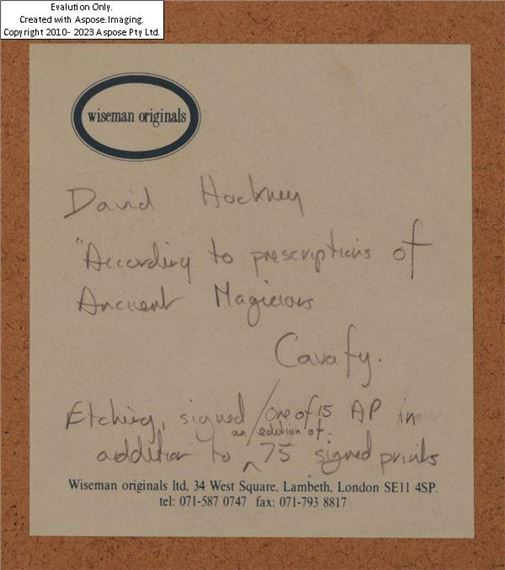 Evalution Only.
Created with Aspose.Imaging.
Copyright 2010- 2023 Aspose Pty Ltd.
wiseman originals
David Hockney
"According to prescriptions of
Ancient Magicians
Cavafy.
Etching, signed / one of 15 AP in
an edition of
addition to ^ 75 signed prints
Wiseman originals ltd, 34 West Square, Lambeth, London SE11 4SP.
tel: 071-587 0747 fax: 071-793 8817